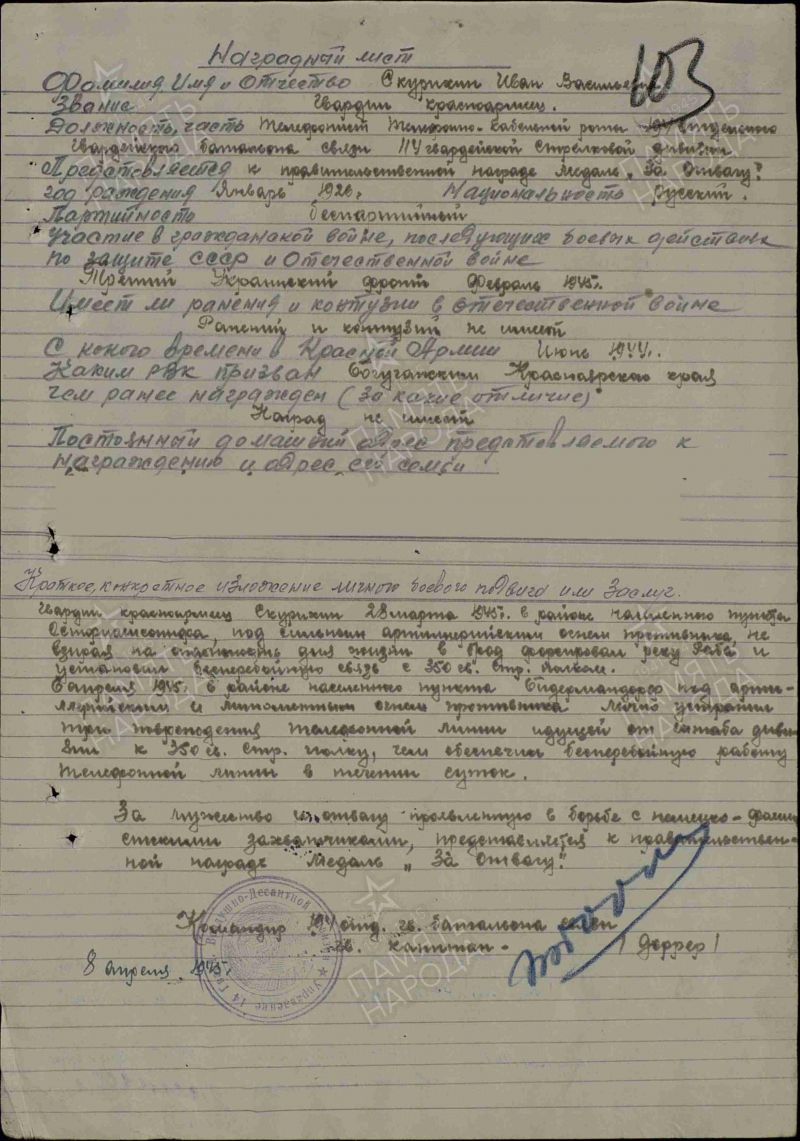 Наградный лист
103
Фамилия Имя и Отчество Скурихин Иван Васильевич
Звание Гвардии красноармеец.
Должность, часть Телефонист Телефонно-кабельной роты отдельного
Гвардейского батальона связи 114 гвардейской Стрелковой дивизии
Представляется к правительственной награде Медаль „За Отвагу"
год рождения Январь 1926. Национальность Русский.
Партийность беспартийный
Участие в гражданской войне, последующих боевых действиях
по защите СССР и Отечественной войне
Третий Украинский фронт Февраль 1945г.
Имеет ли ранения и контузии в отечественной войне
Ранений и контузий не имеет
С какого времени в Красной Армии Июнь 1944г.
Каким РВК призван Богучанским Красноярского края
чем ранее награжден (за какие отличия)
Наград не имеет
Постоянный домашний адрес представляемого к
награждению и адрес его семьи
Краткое, конкретное изложение личного боевого подвига или Заслуг.
Гвардии красноармеец Скурихин 28 марта 1945г. в районе населенного пункта
под сильным артиллерийским огнем противника, не
взирая на опасность для жизни в брод форсировал реку Раба и
установил бесперебойную связь с 350 гв. Стр. Полком.
6 апреля 1945г. в районе населенного пункта под арти-
ллерийским и минометным огнем противника лично устранил
три повреждения телефонной линии идущей от штаба диви-
зии к 350 гв. Стр. полку, чем обеспечил бесперебойную работу
телефонной линии в течении суток.
За мужество и отвагу проявленную в борьбе с немецко-фаши-
стскими захватчиками, представляется к правительствен-
ной награде Медаль „За Отвагу".
Командир отд. гв. батальона связи
гв. капитан - / Доррер /
8 апреля 1945г.
Управление 14 Гвардейской Воздушно-Десантной Дивизии
ПАМЯТЬ НАРОДА